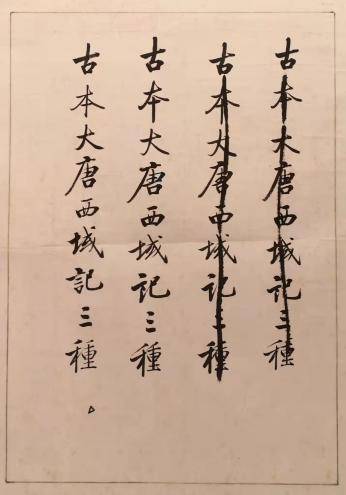 古本大唐西域記三種
古本大唐西域記三種
古本大唐西域記三種
古本大唐西域記三種